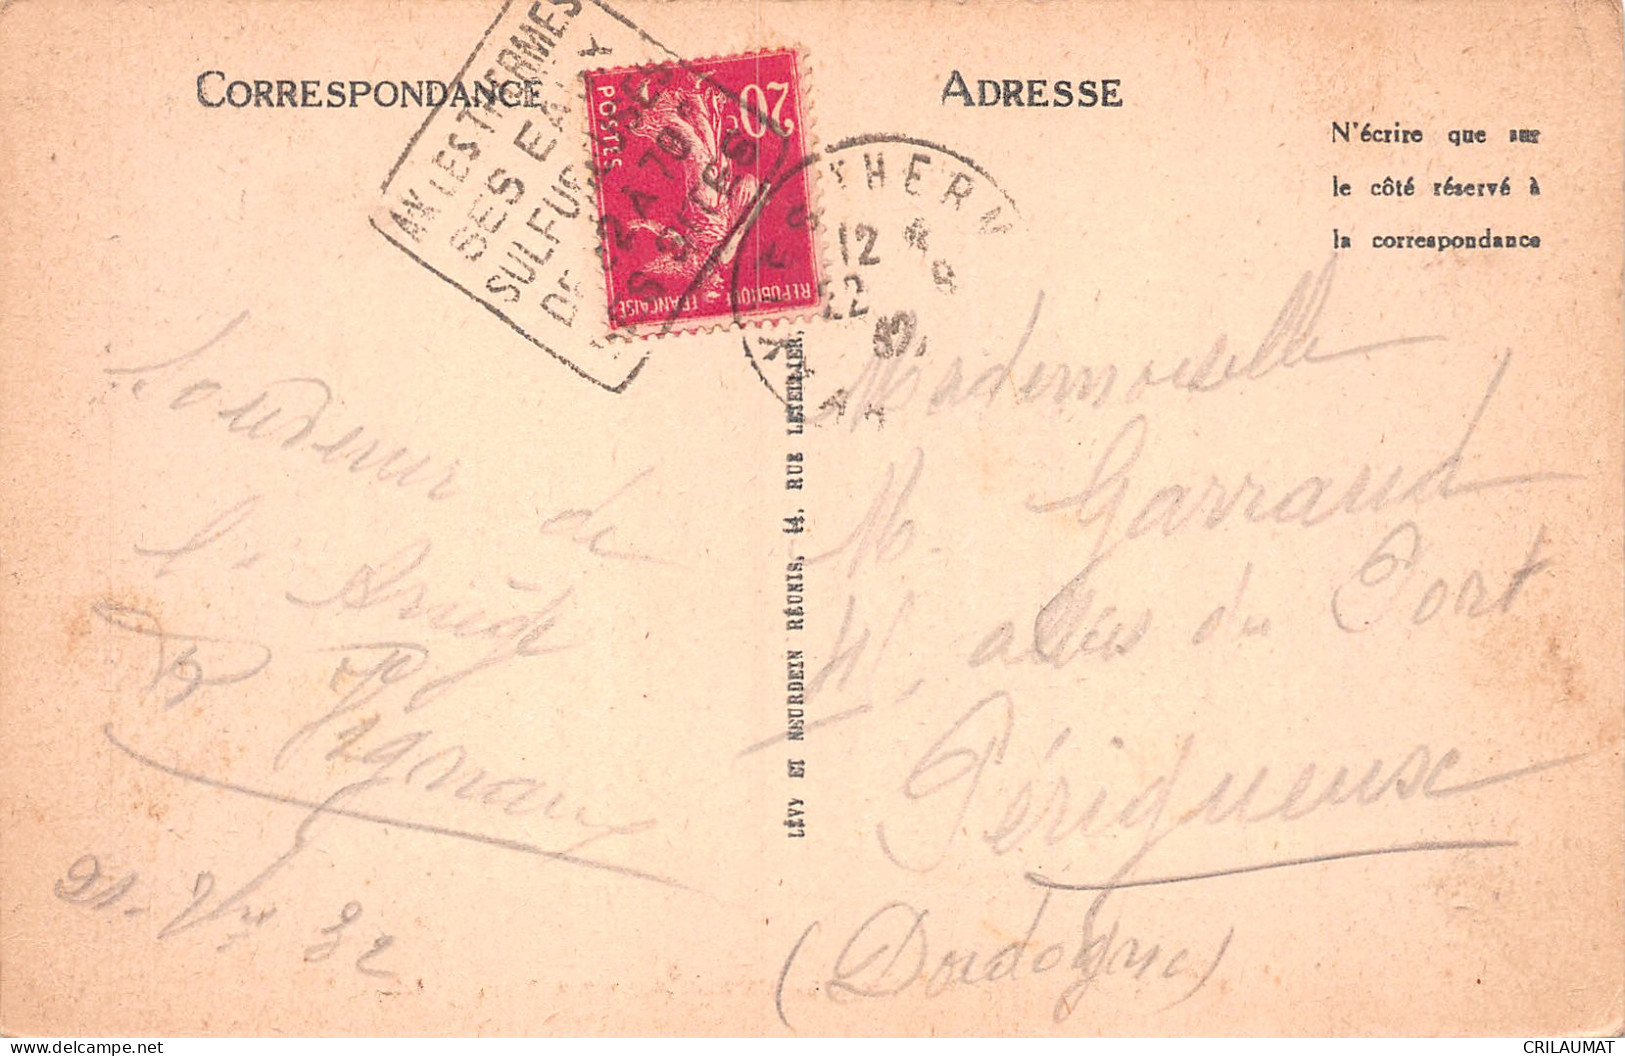 CORRESPONDANCE
ADRESSE
N'écrire que sur
le côté réservé à
la correspondance
AX LES THERMES
SES EAUX
SULFUREUSES
DE 22 A 78°
POSTES
20c
REPUBLIQUE FRANÇAISE
12
22
LÉVY ET NEURDEIN RÉUNIS, 44, RUE LETELLIER,
Souvenir de
l'Ariège
Mademoiselle
M. Garraud
allées du Port
Périgueux
(Dordogne)
32
CRILAUMAT